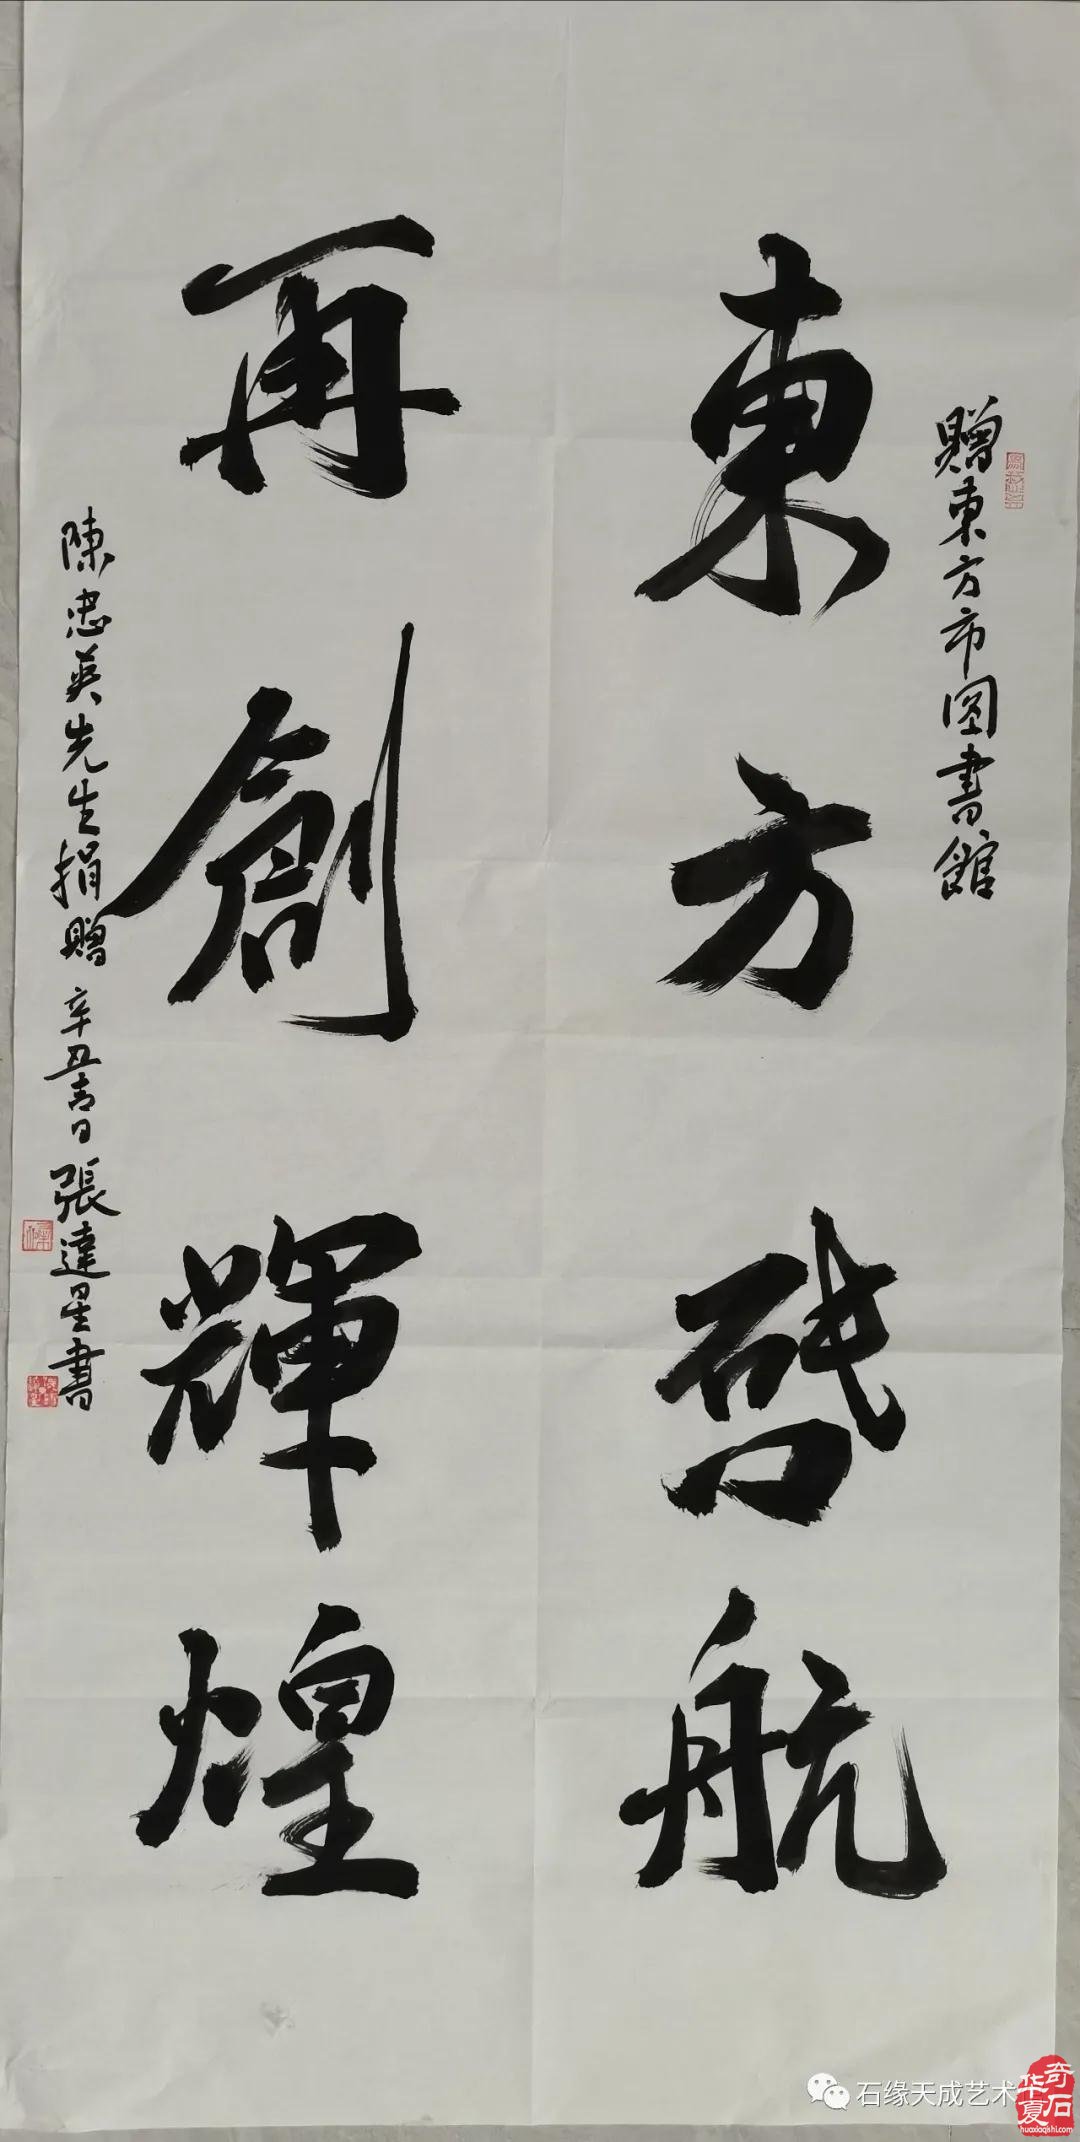 贈東方市图書館
東方啟航
再創輝煌
陳忠英先生捐贈 辛丑吉日 張達星書
石缘天成艺术
华夏奇石
huaxiaqishi.com